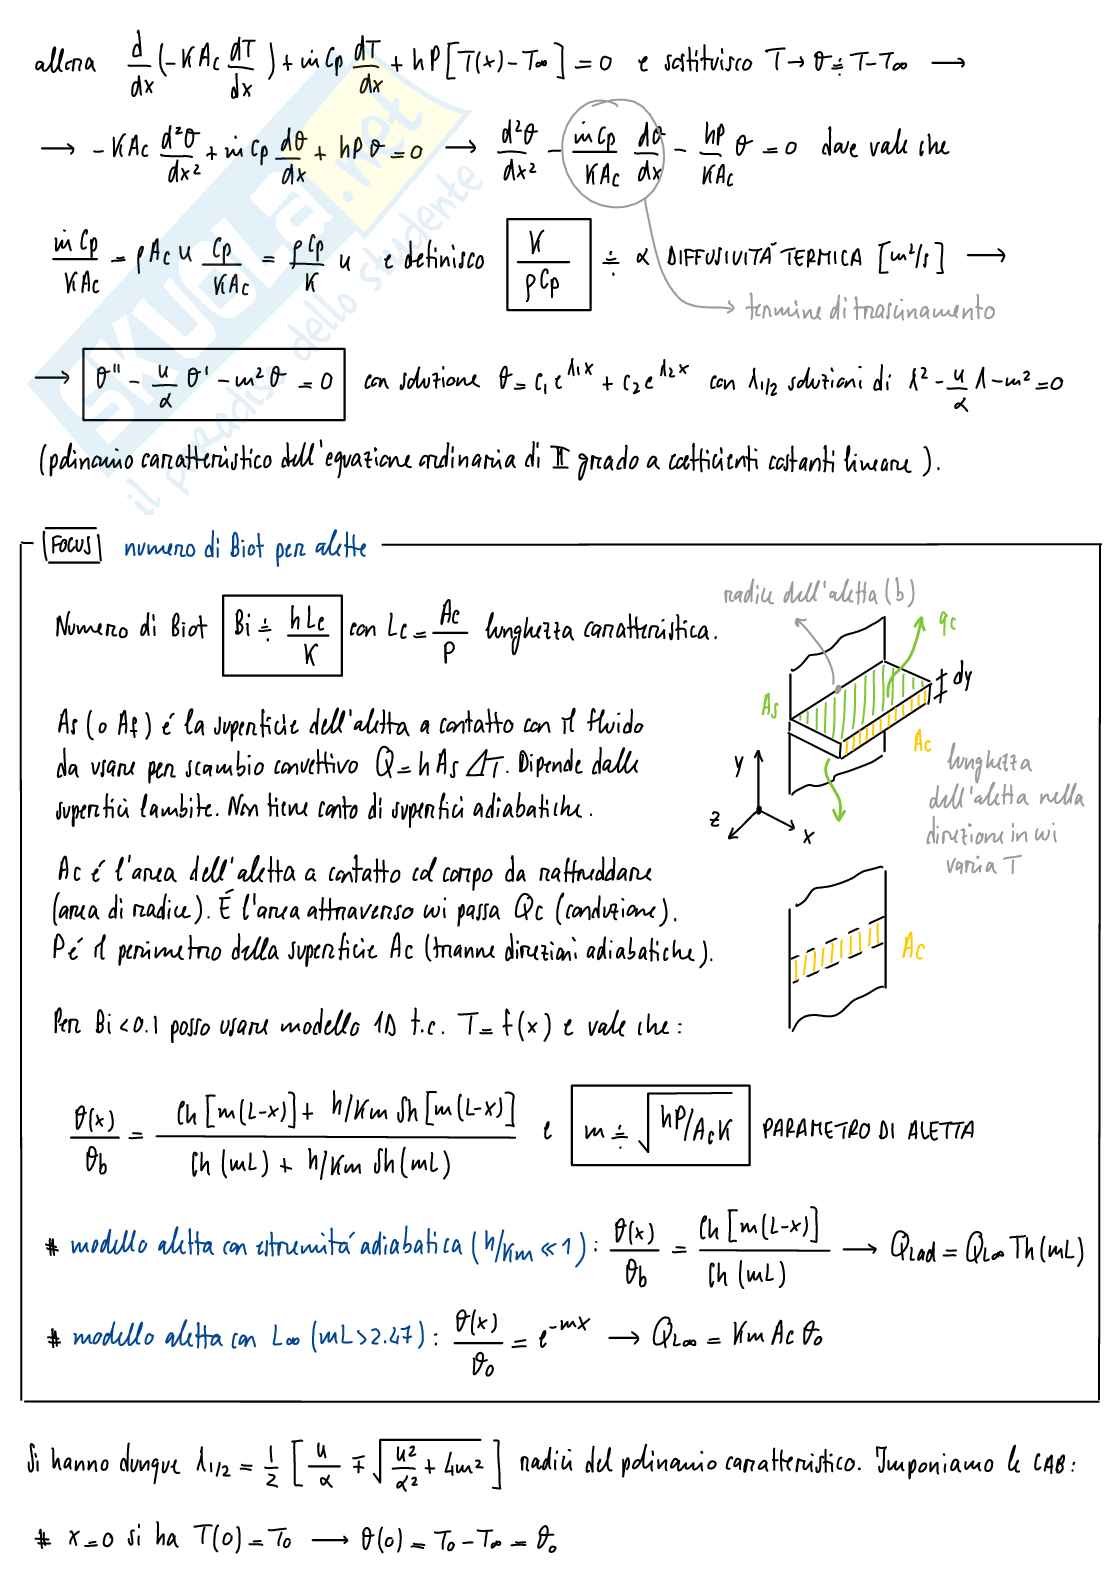 allora d/dx (-KAc dT/dx) + ṁCp dT/dx + hP[T(x)-T∞] = 0 e sostituisco T→θ≐T-T∞ →
→ -KAc d²θ/dx² + ṁCp dθ/dx + hPθ = 0 → d²θ/dx² - ṁCp/KAc dθ/dx - hP/KAc θ = 0 dove vale che
ṁCp/KAc = ρAc u Cp/KAc = ρCp/K u e definisco K/ρCp ≐ α DIFFUSIVITÁ TERMICA [m²/s] →
→ termine di trascinamento
→ θ'' - u/α θ' - m²θ = 0 con soluzione θ = C₁e^λ₁x + C₂e^λ₂x con λ1/2 soluzioni di λ² - u/α λ - m² = 0
(polinomio caratteristico dell'equazione ordinaria di II grado a coefficienti costanti lineare).
SKUOLA.net
il paradiso dello studente
FOCUS numero di Biot per alette
radice dell'aletta (b)
Numero di Biot Bi ≐ hLc/K con Lc = Ac/P lunghezza caratteristica.
qc
dy
As
Ac
As (o Af) é la superficie dell'aletta a contatto con il fluido
da usare per scambio convettivo Q = hAsΔT. Dipende dalle
superfici lambite. Non tiene conto di superfici adiabatiche.
y
z
x
lunghezza
dell'aletta nella
direzione in cui
varia T
Ac é l'area dell'aletta a contatto col corpo da raffreddare
(area di radice). É l'area attraverso cui passa Qc (conduzione).
P é il perimetro della superficie Ac (tranne direzioni adiabatiche).
Ac
Per Bi < 0.1 posso usare modello 1D t.c. T = f(x) e vale che:
θ(x)/θb = Ch[m(L-x)] + h/Km Sh[m(L-x)] / Ch(mL) + h/Km Sh(mL) e m ≐ √hP/AcK PARAMETRO DI ALETTA
# modello aletta con estremitá adiabatica (h/Km ≪ 1): θ(x)/θb = Ch[m(L-x)]/Ch(mL) → QLad = QL∞ Th(mL)
# modello aletta con L∞ (mL > 2.47): θ(x)/θ₀ = e^-mx → QL∞ = KmAcθ₀
Si hanno dunque λ1/2 = 1/2 [u/α ∓ √u²/α² + 4m²] radici del polinomio caratteristico. Imponiamo le CAB:
# x = 0 si ha T(0) = T₀ → θ(0) = T₀ - T∞ = θ₀